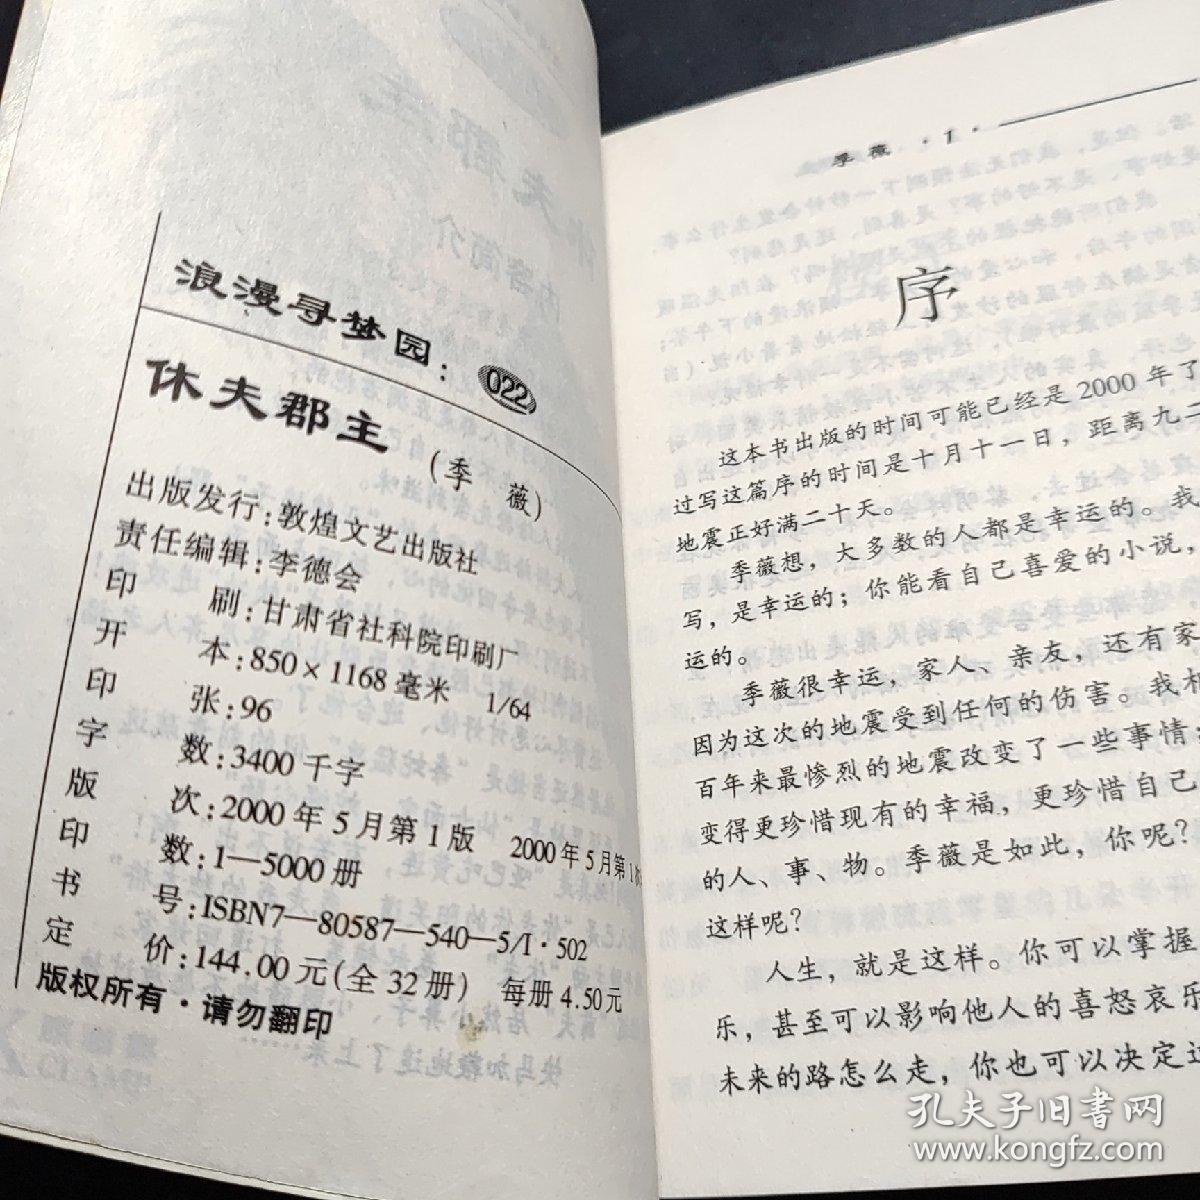 浪漫寻梦园：022
休夫郡主
（季 薇）
出版发行：敦煌文艺出版社
责任编辑：李德会
印 刷：甘肃省社科院印刷厂
开 本：850×1168毫米 1/64
印 张：96
字 数：3400千字
版 次：2000年5月第1版 2000年5月第1
印 数：1—5000册
书 号：ISBN7—80587—540—5/I·502
定 价：144.00元（全32册） 每册4.50元
版权所有·请勿翻印
季 薇 ·1·
序
这本书出版的时间可能已经是2000年了
过写这篇序的时间是十月十一日，距离九二
地震正好满二十天。
季薇想，大多数的人都是幸运的。我
写，是幸运的；你能看自己喜爱的小说，
运的。
季薇很幸运，家人、亲友，还有家
因为这次的地震受到任何的伤害。我相
百年来最惨烈的地震改变了一些事情：
变得更珍惜现有的幸福，更珍惜自己
的人、事、物。季薇是如此，你呢？
这样呢？
人生，就是这样。你可以掌握
乐，甚至可以影响他人的喜怒哀乐
未来的路怎么走，你也可以决定这
孔夫子旧书网
www.kongfz.com